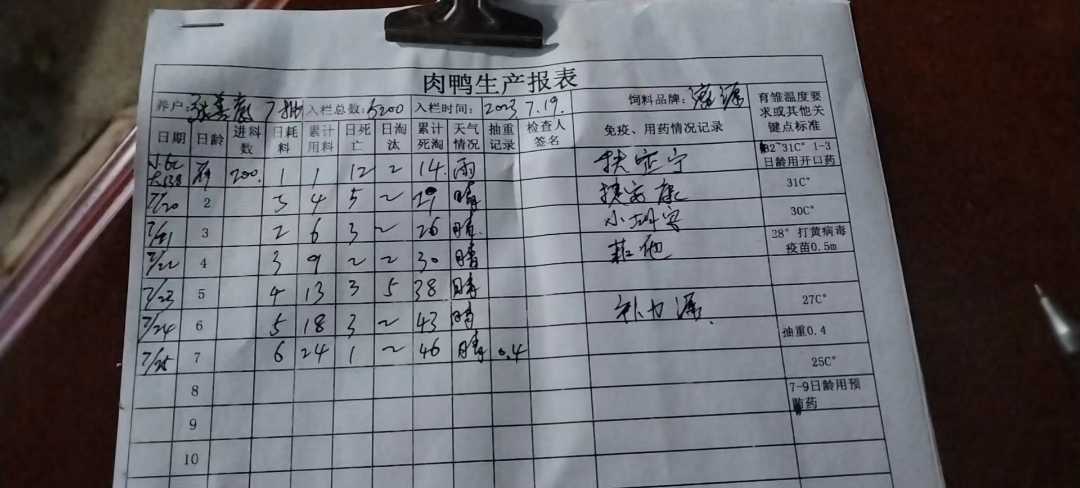 肉鸭生产报表
养户: 7批 入栏总数: 5200 入栏时间: 2023 7.19. 饲料品牌: 育雏温度要求或其他关键点标准
日期 日龄 进料数 日耗料 累计用料 日死亡 日淘汰 累计死淘 天气情况 抽重记录 检查人签名 免疫、用药情况记录
200. 1 1 12 2 14. 雨 32~31C° 1-3日龄用开口药
7/20 2 3 4 5 2 晴 31C°
7/21 3 2 6 3 2 26 晴. 30C°
7/22 4 3 9 2 2 30 晴 28° 打黄病毒疫苗0.5m
7/23 5 4 13 3 5 38 晴
7/24 6 5 18 3 2 43 晴 27C°
7/25 7 6 24 1 2 46 晴 0.4 抽重0.4
25C°
8 7-9日龄用预防药
9
10